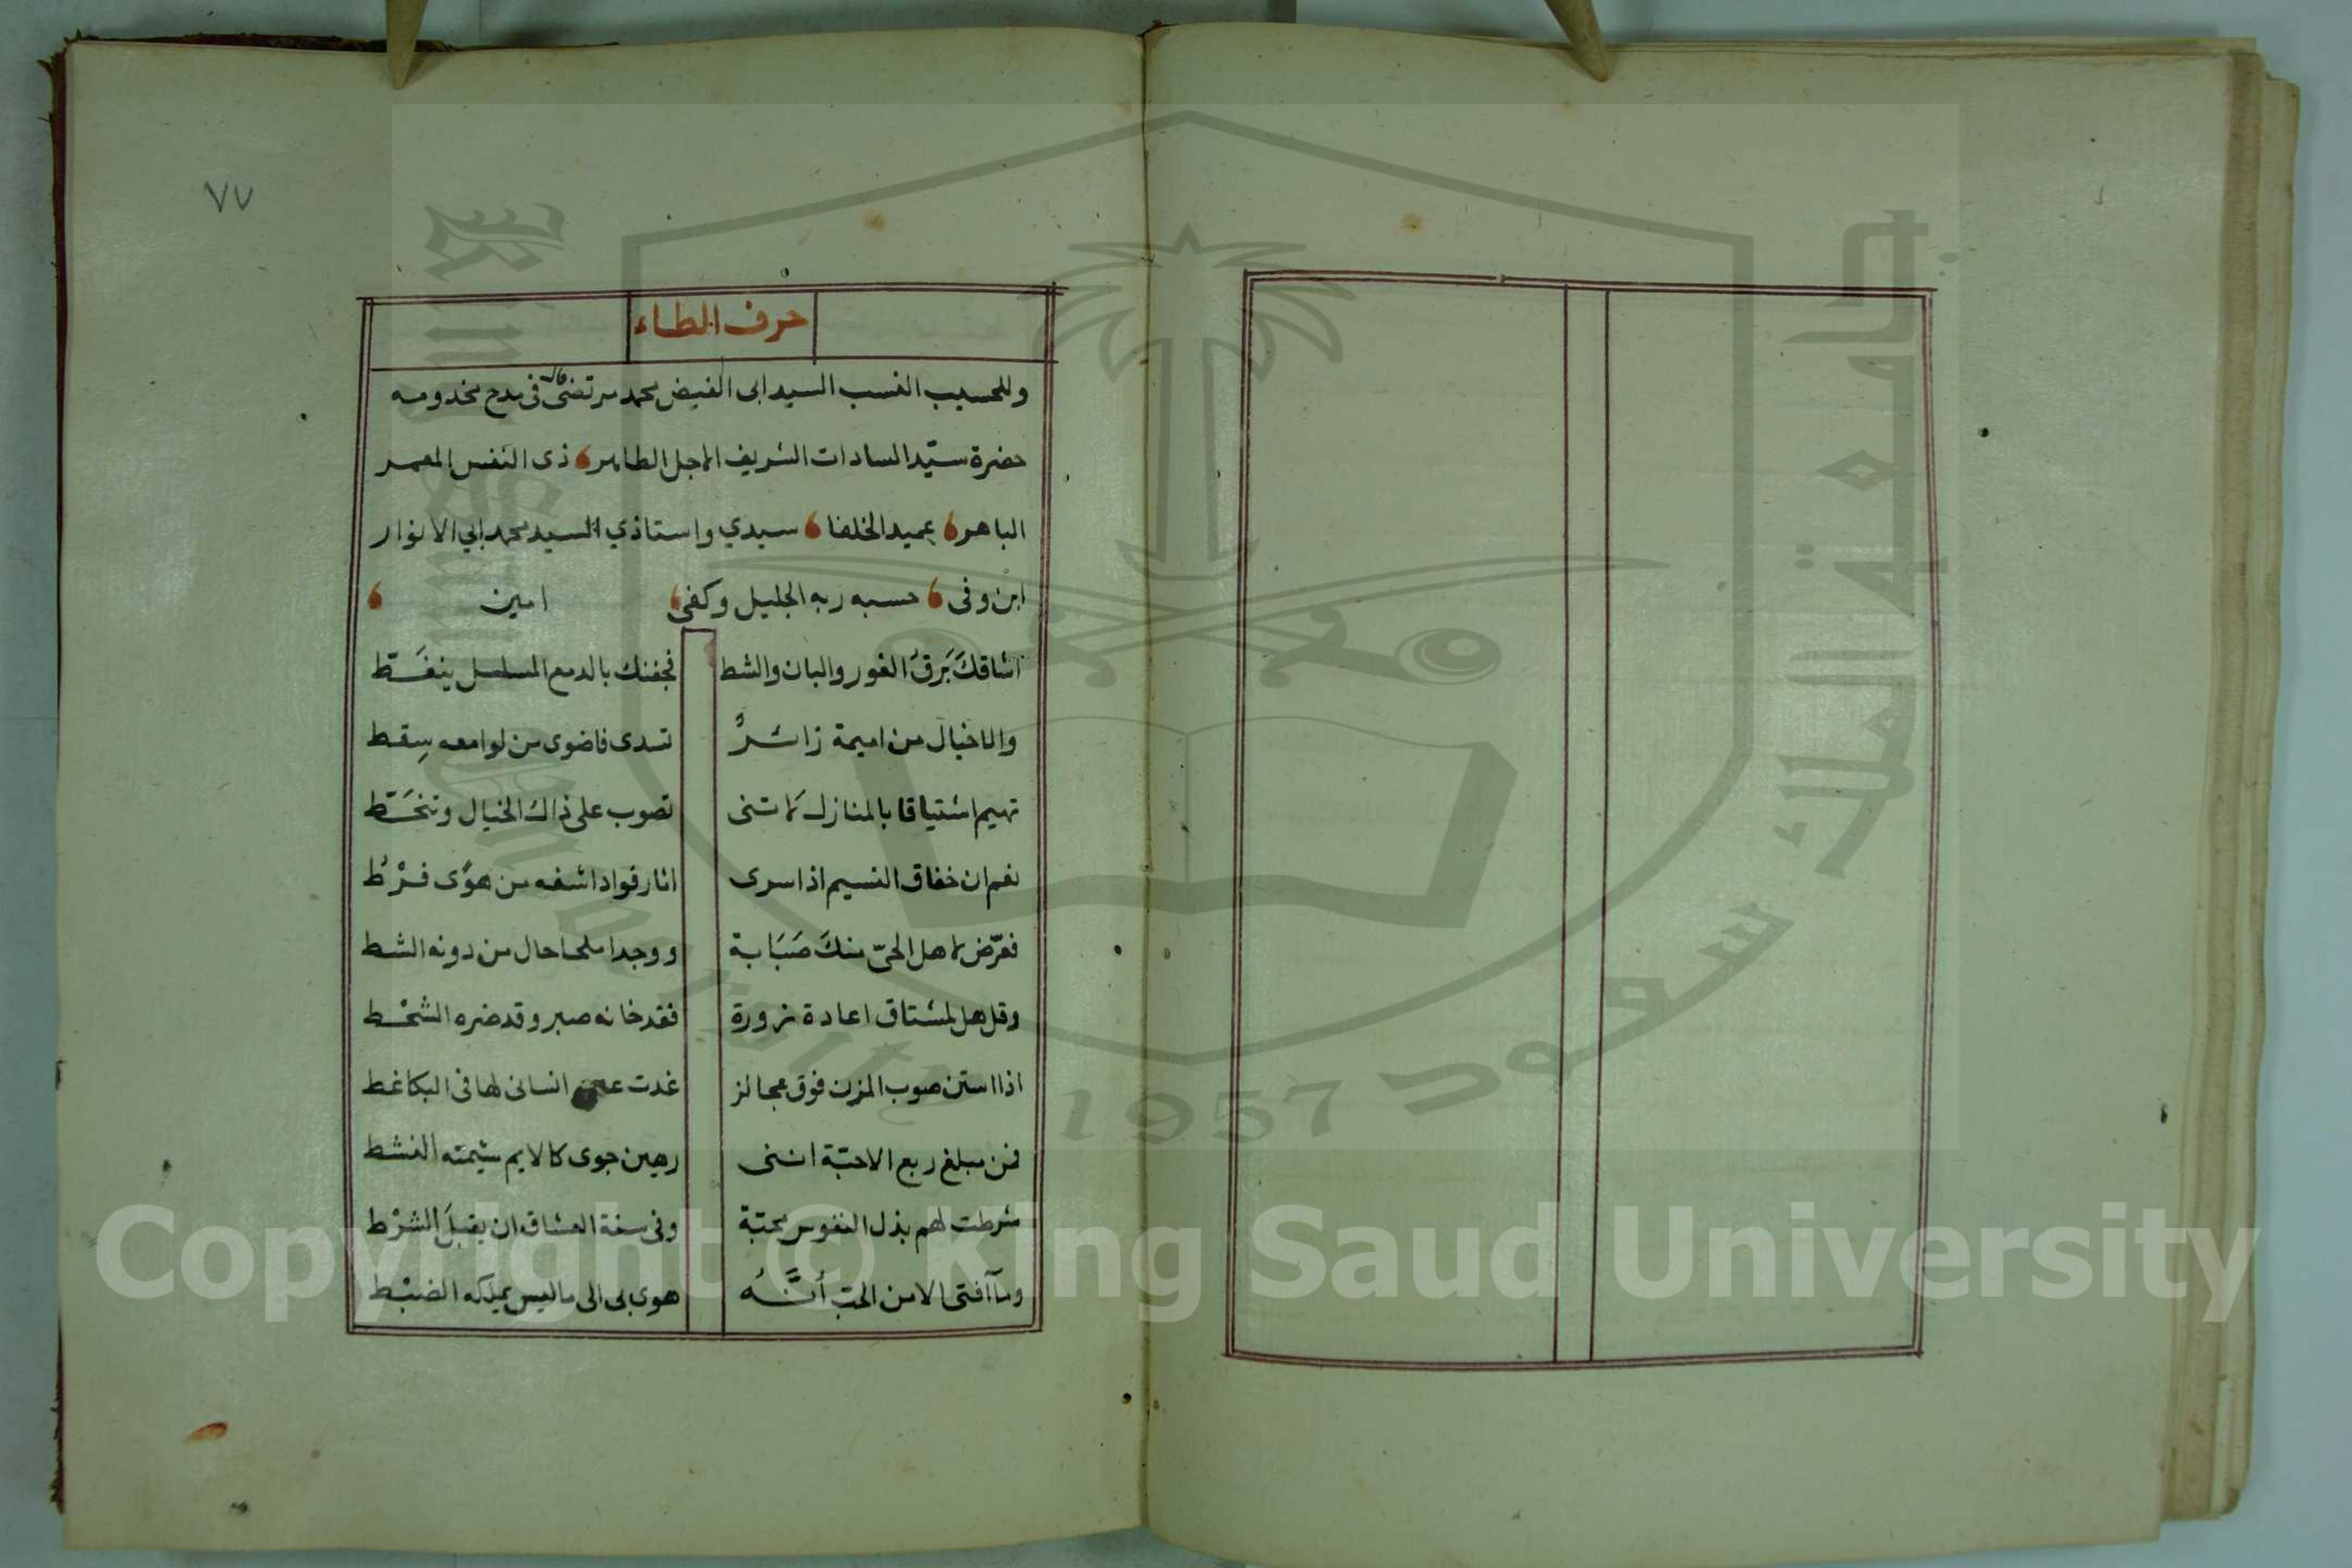 ٧٧
حرف الطاء
وللحسيب النسب السيد ابى الفيض محمد مرتضى قال فى مدح مخدومه
حضرة سيّد السادات الشريف الاجل الطاهر، ذى النفس المعمر
الباهر، عميد الخلفا، سيدي واستاذي السيد محمد ابي الانوار
ابن وفى، حسبه ربه الجليل وكفى، امين،
اشاقكَ بَرقُ الغور والبان والشط فجفنك بالدمع المسلسل ينفَـتط
والا خيال من اميمة زائرٌ تسدى فاضوى من لوامعه سِقط
تهيم اشتياقا بالمنازل لا تنى تصوب على ذاك الخيال وتنخَـتط
نعم ان خفاق النسيم اذا سرى اثار فوادا شفه من هوًى فرْطُ
فعرّض لاهل الحىّ منكَ صَبَابة ووجدا ملحا حال من دونه الشط
وقل هل لمشتاق اعادة زورة فقد خانه صبر وقد ضره الشحْط
اذا استن صوب المزن فوق عجالز غدت انسانى لها فى البكا غط
فمن مبلغ ربع الاحبّة اننى رهين جوى كالايم شيمته النشط
شرطت لهم بذل النفوس محبّة وفى سنة العشاق ان يقبلَ الشرْط
وما آفتى الا من الحب أنَّـهُ هوى بى الى ما ليس يملكه الضبْط
Copyright © King Saud University
جامعة الملك سعود
1957
King Saud University